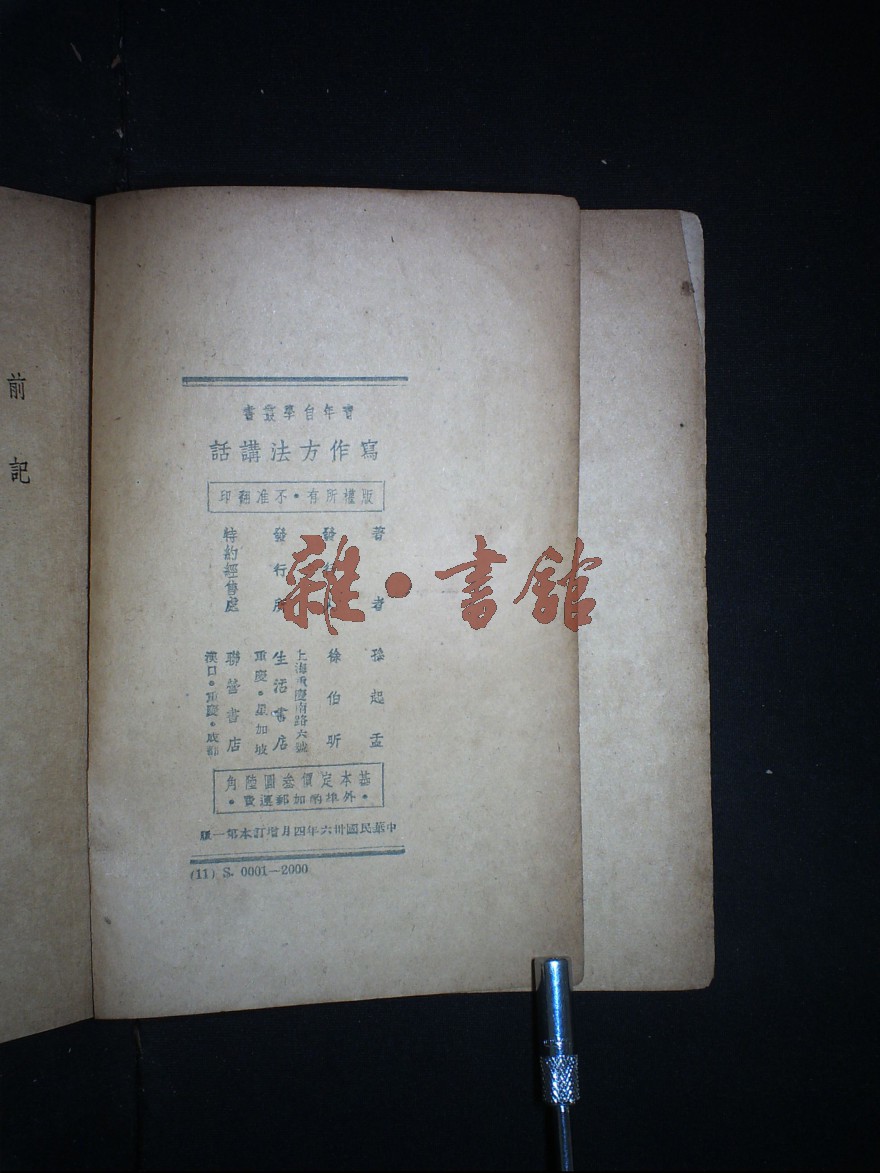 青年自學叢書
寫作方法講話
版權所有・不准翻印
著者 孫起孟
發行人 徐伯昕
發行所 生活書店
上海重慶南路六號
重慶・星加坡
特約經售處 聯營書店
漢口・重慶・成都
基本定價叁圓陸角
・外埠酌加郵運費・
中華民國卅六年四月增訂本第一版
(11) S. 0001—2000
前記
雜・書館